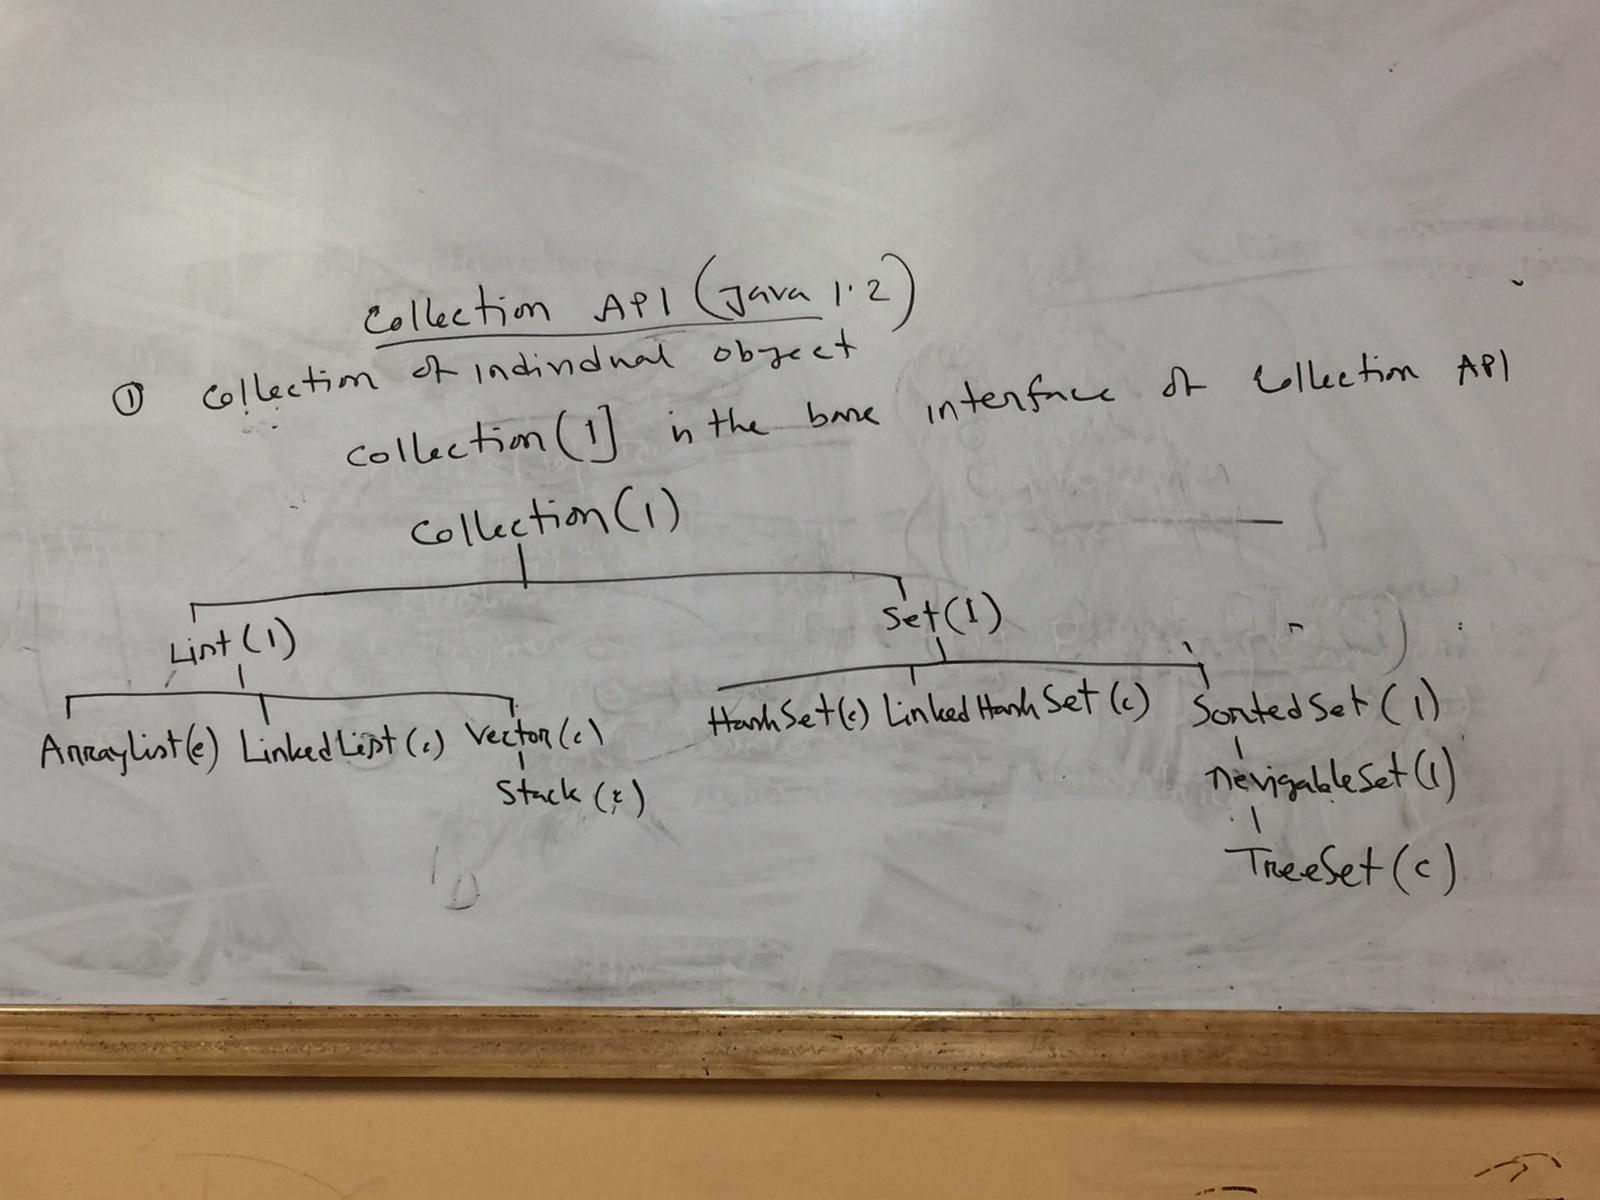 Collection API (Java 1.2)
① Collection of individual object
Collection(I] is the base interface of Collection API
Collection(I)
List(I) Set(I)
ArrayList(c) LinkedList(c) Vector(c) HashSet(c) LinkedHashSet(c) SortedSet(I)
Stack(c) NevigableSet(I)
TreeSet(c)